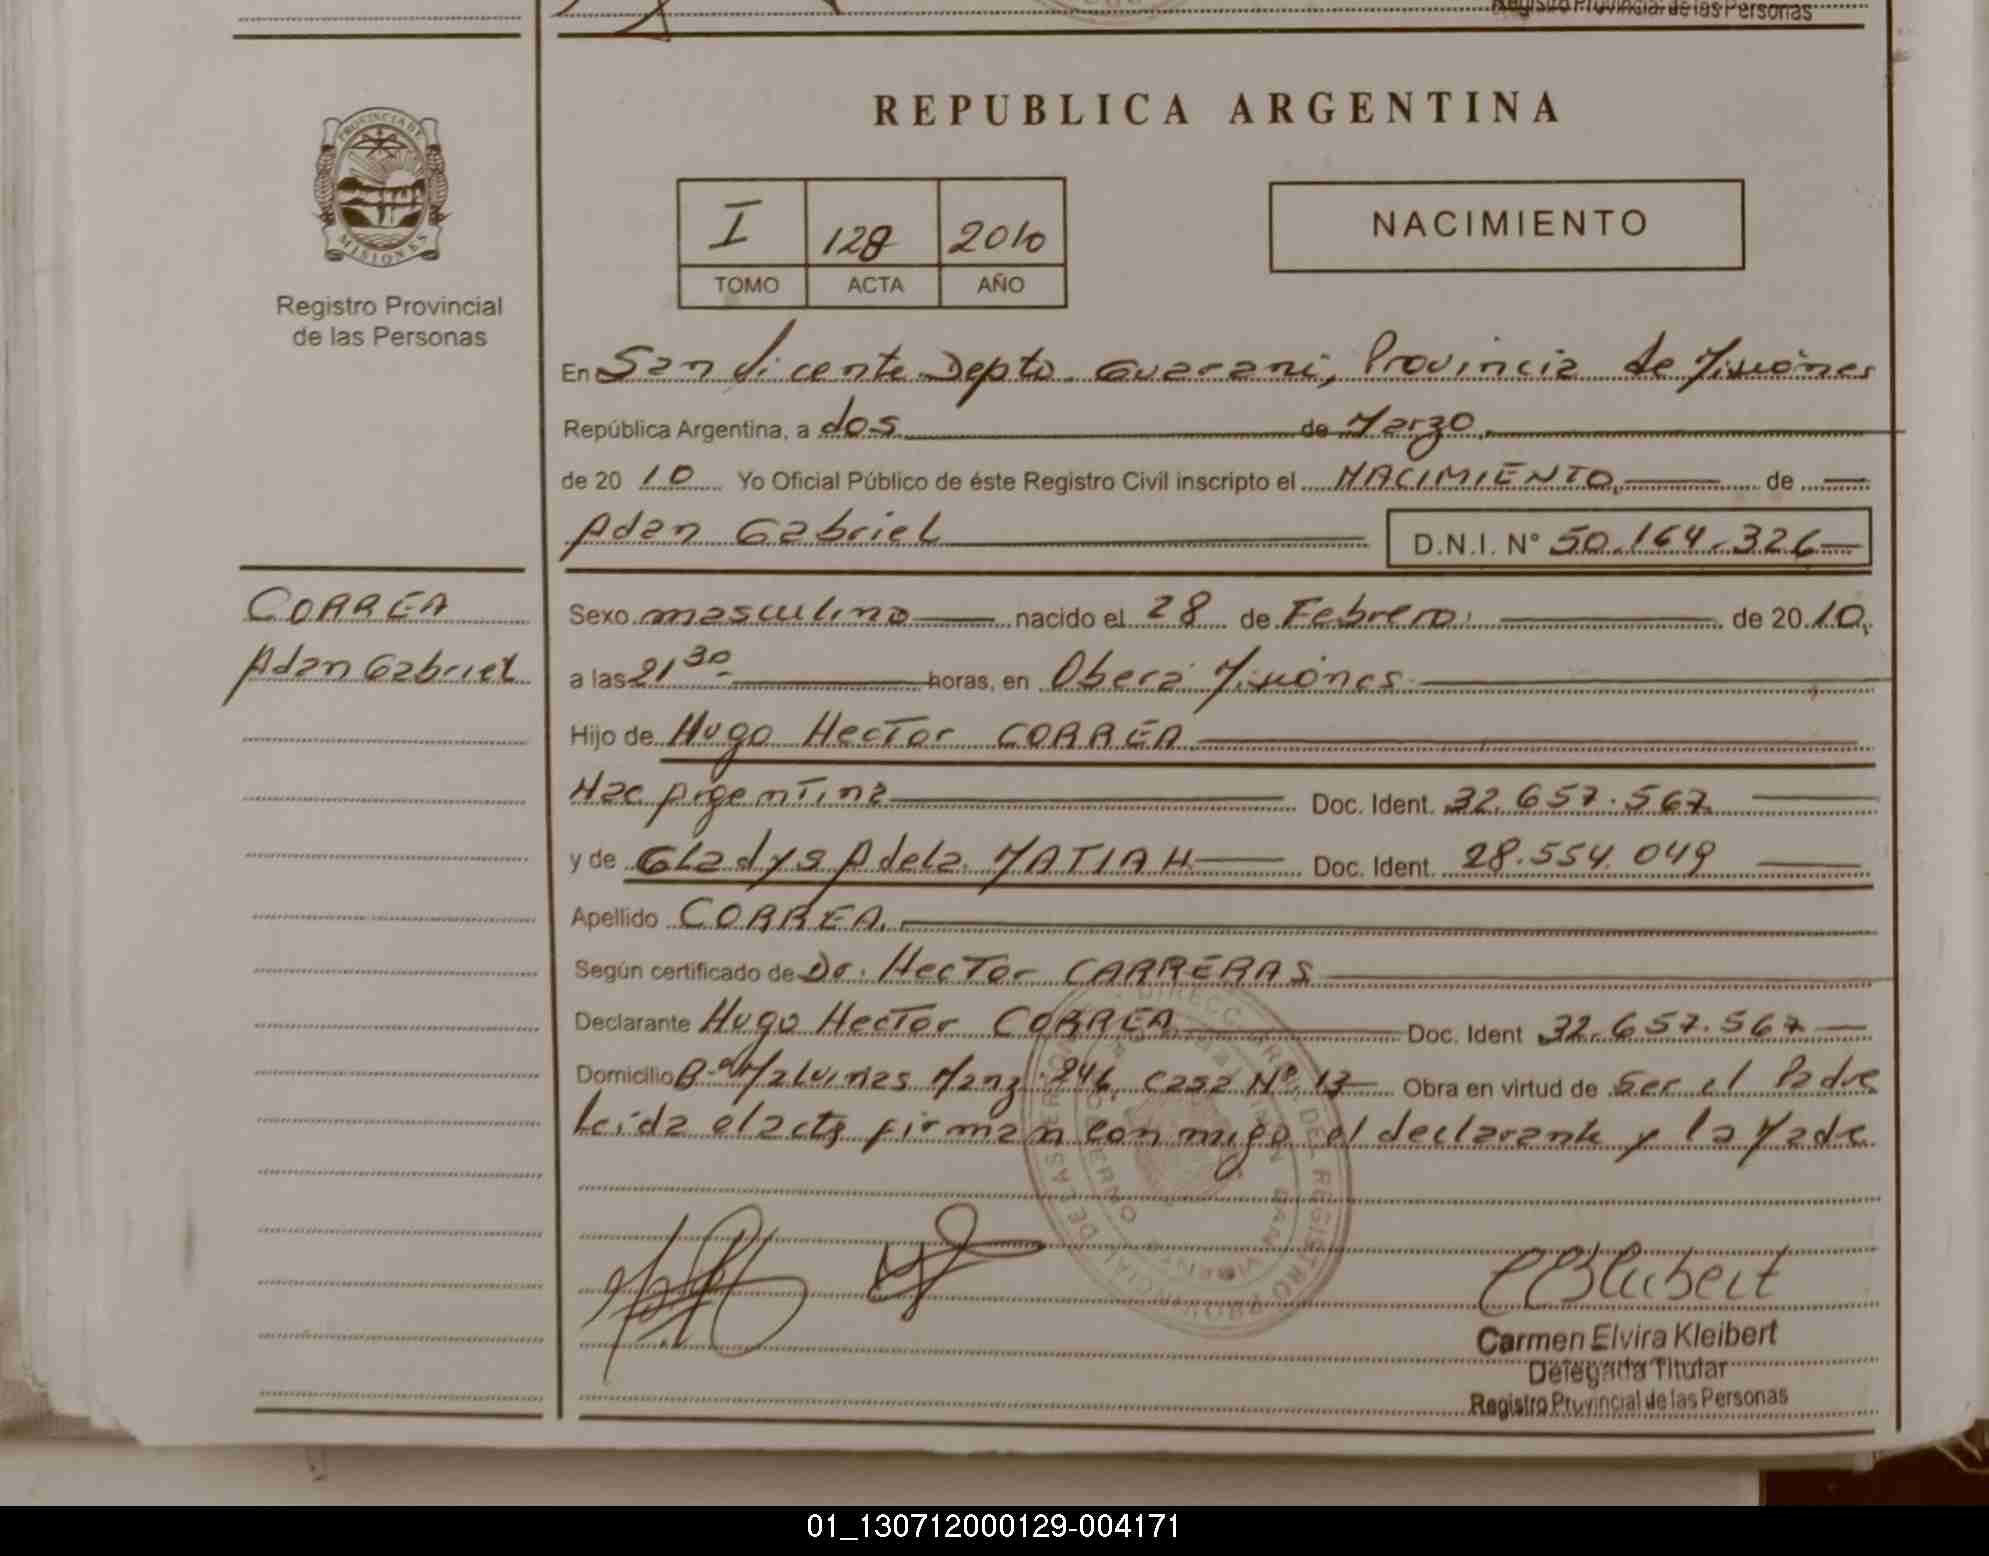 Registro Provincial de las Personas
REPUBLICA ARGENTINA
PROVINCIA DE
MISIONES
Registro Provincial
de las Personas
I 128 2010
TOMO ACTA AÑO
NACIMIENTO
En San Vicente Depto Guarani, Provincia de Misiones
República Argentina, a dos de Marzo
de 2010 Yo Oficial Público de éste Registro Civil inscripto el NACIMIENTO, de
Adan Gabriel D.N.I. N° 50.164.326
CORREA
Adan Gabriel
Sexo masculino nacido el 28 de Febrero de 2010,
a las 21 30 horas, en Oberá Misiones
Hijo de Hugo Hector CORREA
Nac Argentina Doc. Ident. 32.657.567
y de Gladys Adela MATIAK Doc. Ident. 28.554.049
Apellido CORREA.
Según certificado de Dr. Hector CARRERAS
Declarante Hugo Hector CORREA Doc. Ident 32.657.567
Domicilio B° Malvinas Manz 246 Casa N° 13 Obra en virtud de Ser el Padre
Leida el acta firman con migo el declarante y la Madre
Carmen Elvira Kleibert
Delegada Titular
Registro Provincial de las Personas
01_130712000129-004171